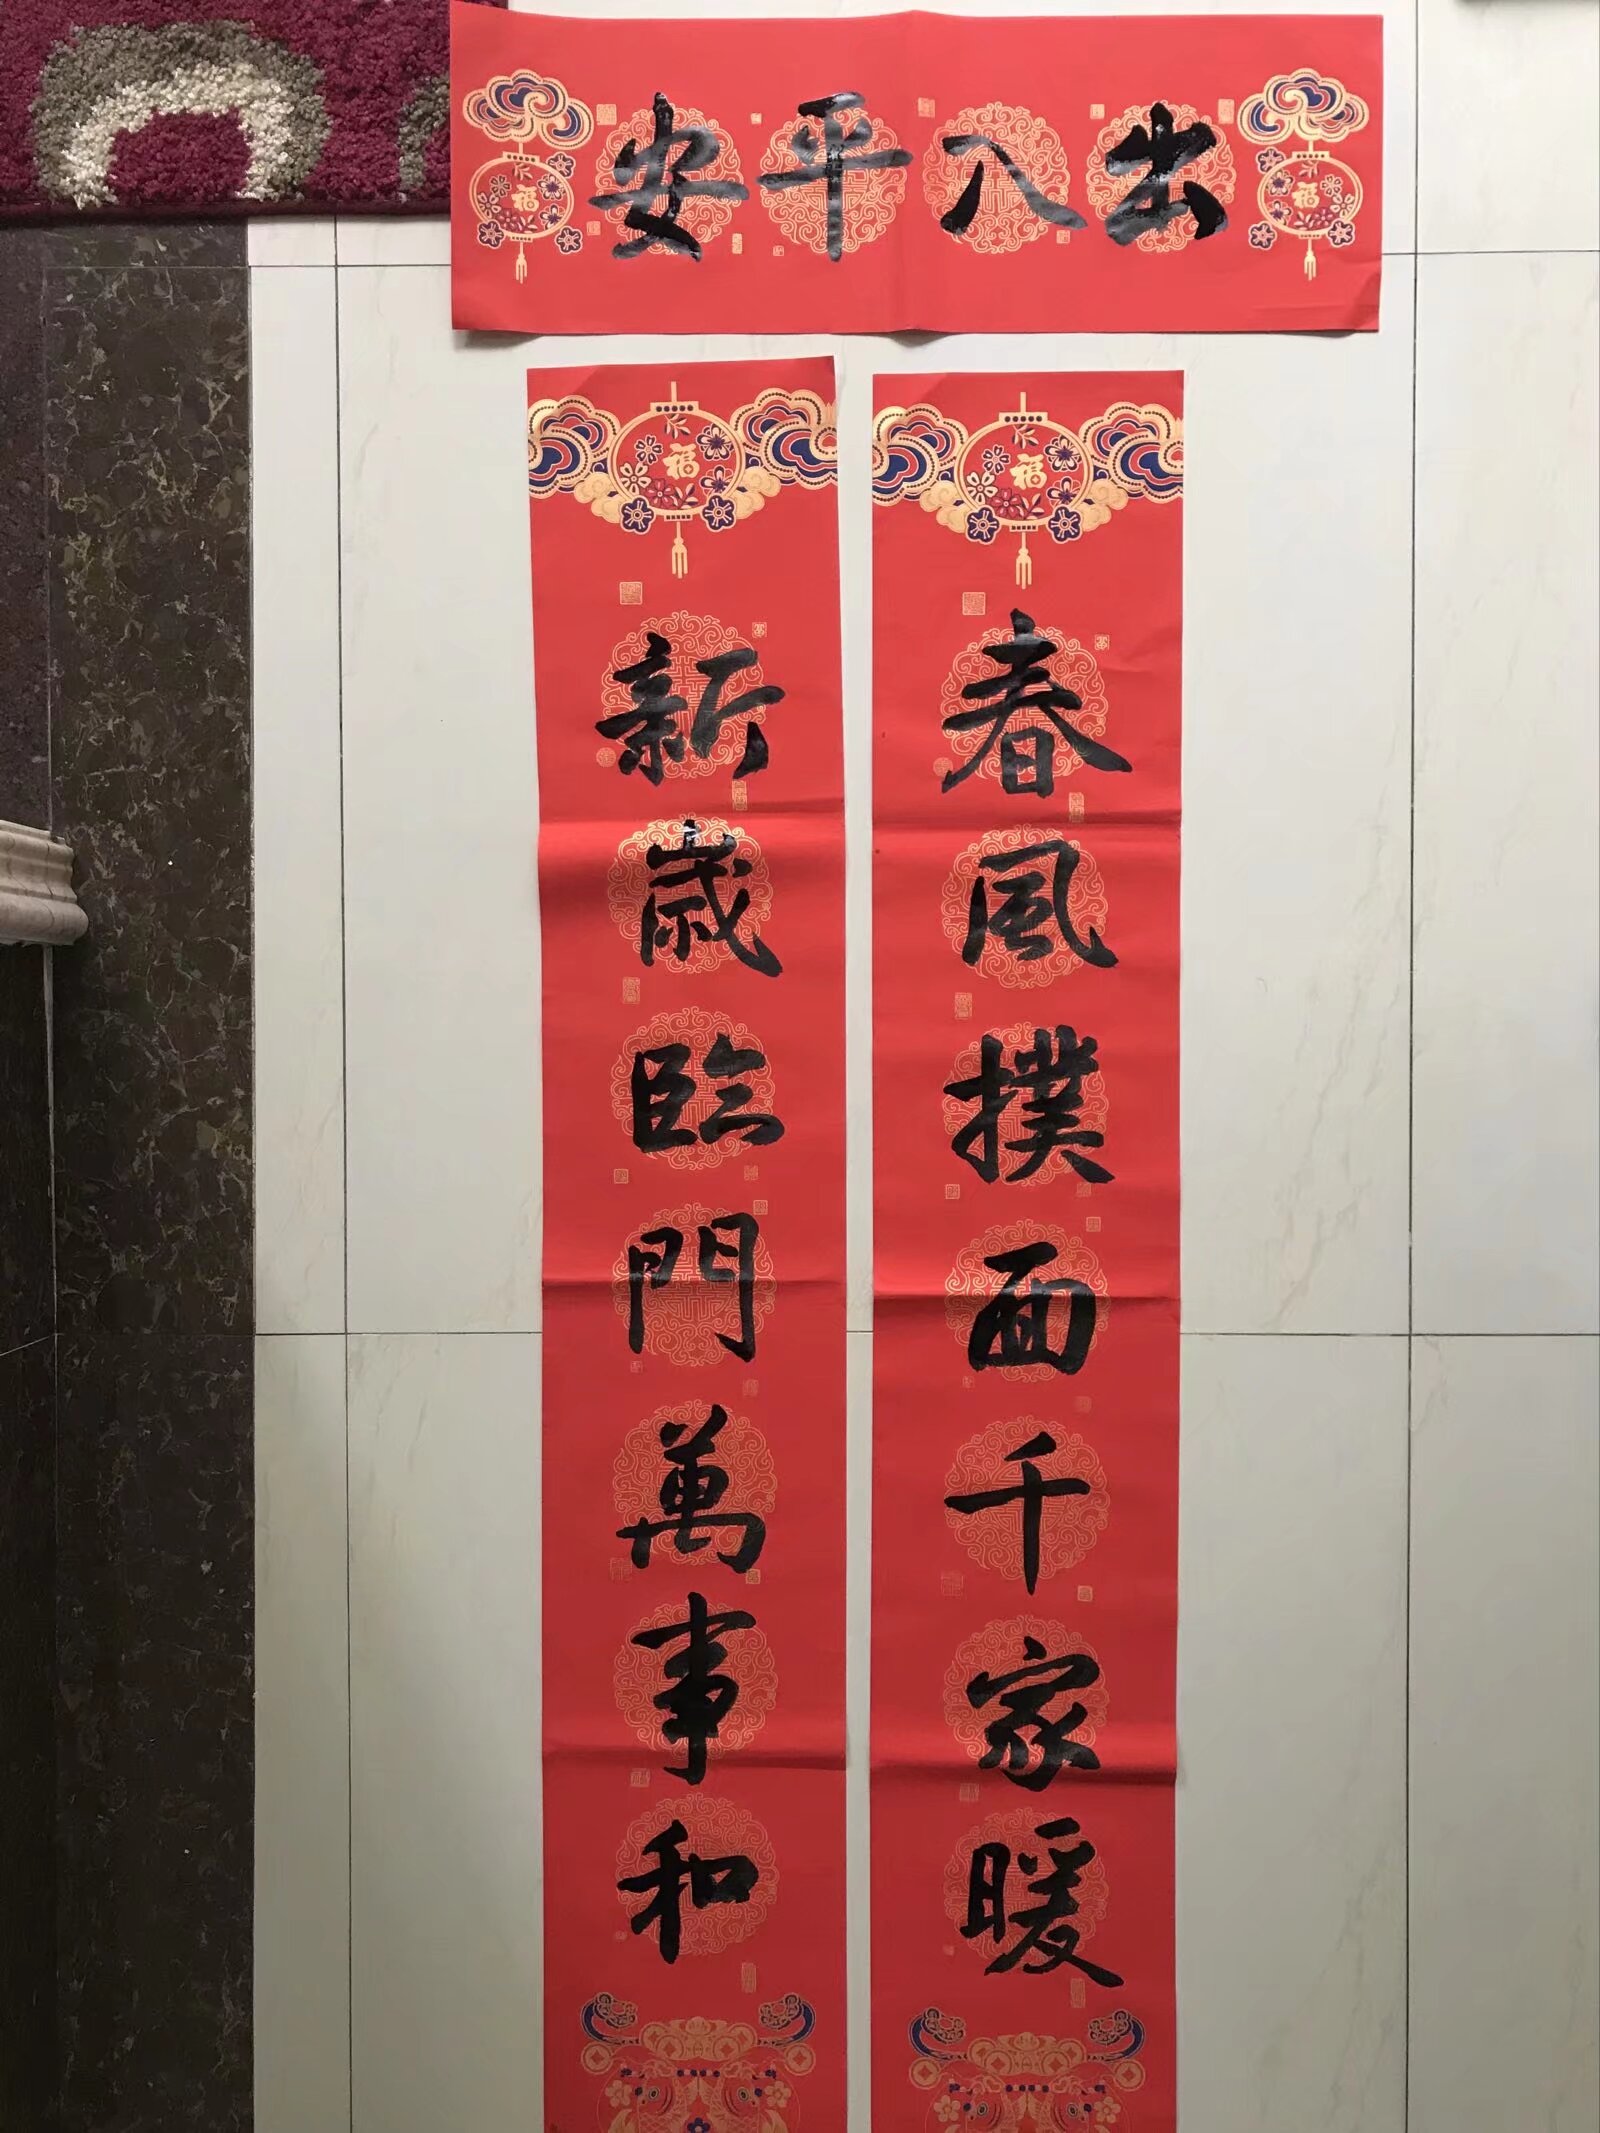 出入平安
春風撲面千家暖
新歲臨門萬事和
福
福
福
福